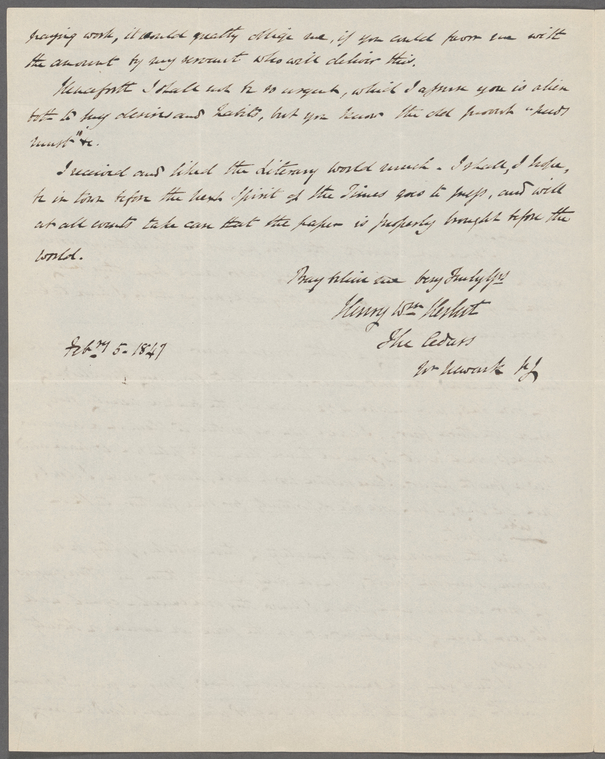 paying work, it would greatly oblige me, if you could favor me with
the amount by my servant who will deliver this.
Henceforth I shall not be so urgent, which I assure you is alien
both to my desires and habits, but you know the old proverb "needs
must" &c.
I received and liked the Literary World much - I shall, I hope,
be in town before the next Spirit of the Times goes to press, and will
at all events take care that the paper is properly brought before the
world.
Pray believe me very truly Yrs
Henry Wm Herbert
The Cedars
Nr Newark NJ
Febry 5 - 1847